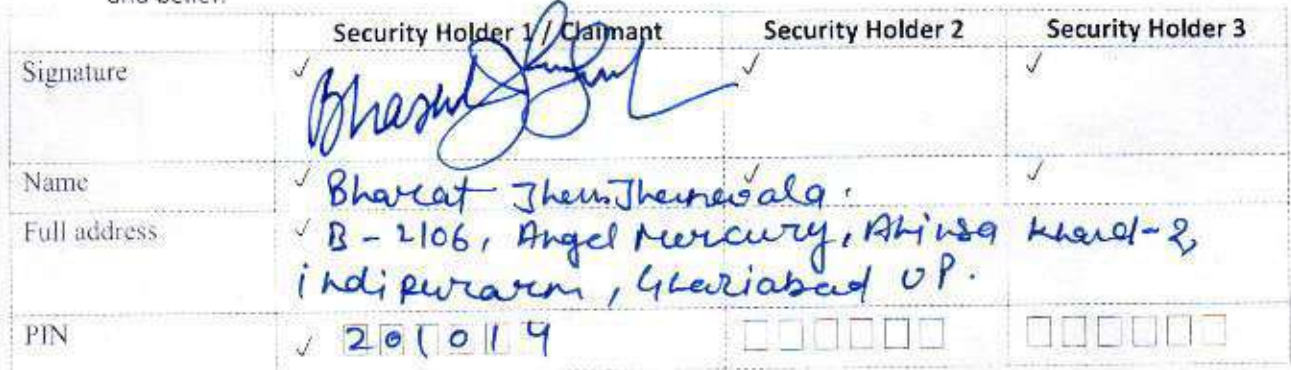 and belief.
Security Holder 1 / Claimant Security Holder 2 Security Holder 3
Signature
Name Bharat JhunJhunewala.
Full address B-2106, Angel Mercury, Ahinsa Khand-2,
indipuram, Ghaziabad UP.
PIN 201014